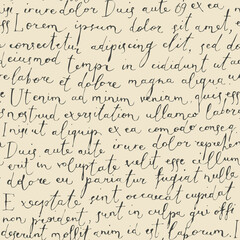 irure dolor Duis aute ex ea
Lorem, ipsum dolor sit amet,
consectetur adipiscing elit, sed do
eiusmod tempor in cididunt ut
relabore et dolore magna aliqua
Ut enim ad minim veniam, quis
nostrud exercitation ullamco
nisi ut aliquip ex ea comodo conseq
Duis aute irure dolor reprehen
erit in voluptate velit esse cillum
dolore eu pariatur fugiat null
Excepteur sint occaecat cupidat
non proident, sunt in culpa qui offi
deserunt mollit anim id est laborum.